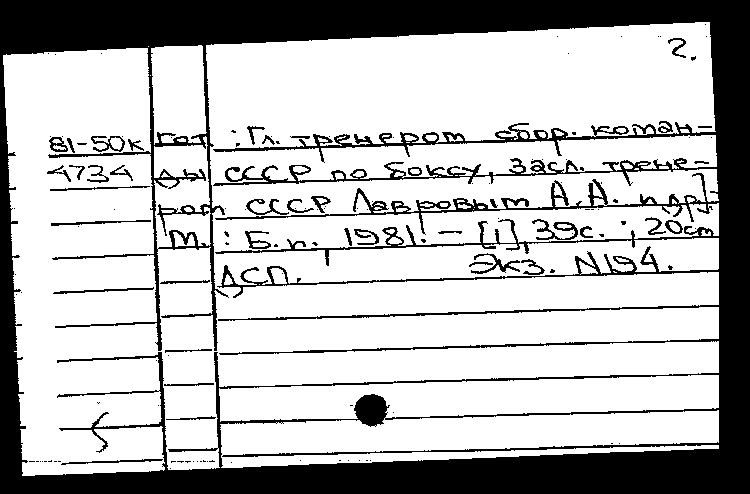 2.
81-50к гот. : Гл. тренером сбор. коман-
4734 ды СССР по боксу, засл. трене-
ром СССР Лавровым А.А. и др]-
М. : Б.и., 1981. - [1], 39с. ; 20см
ДСП. Экз. N194.